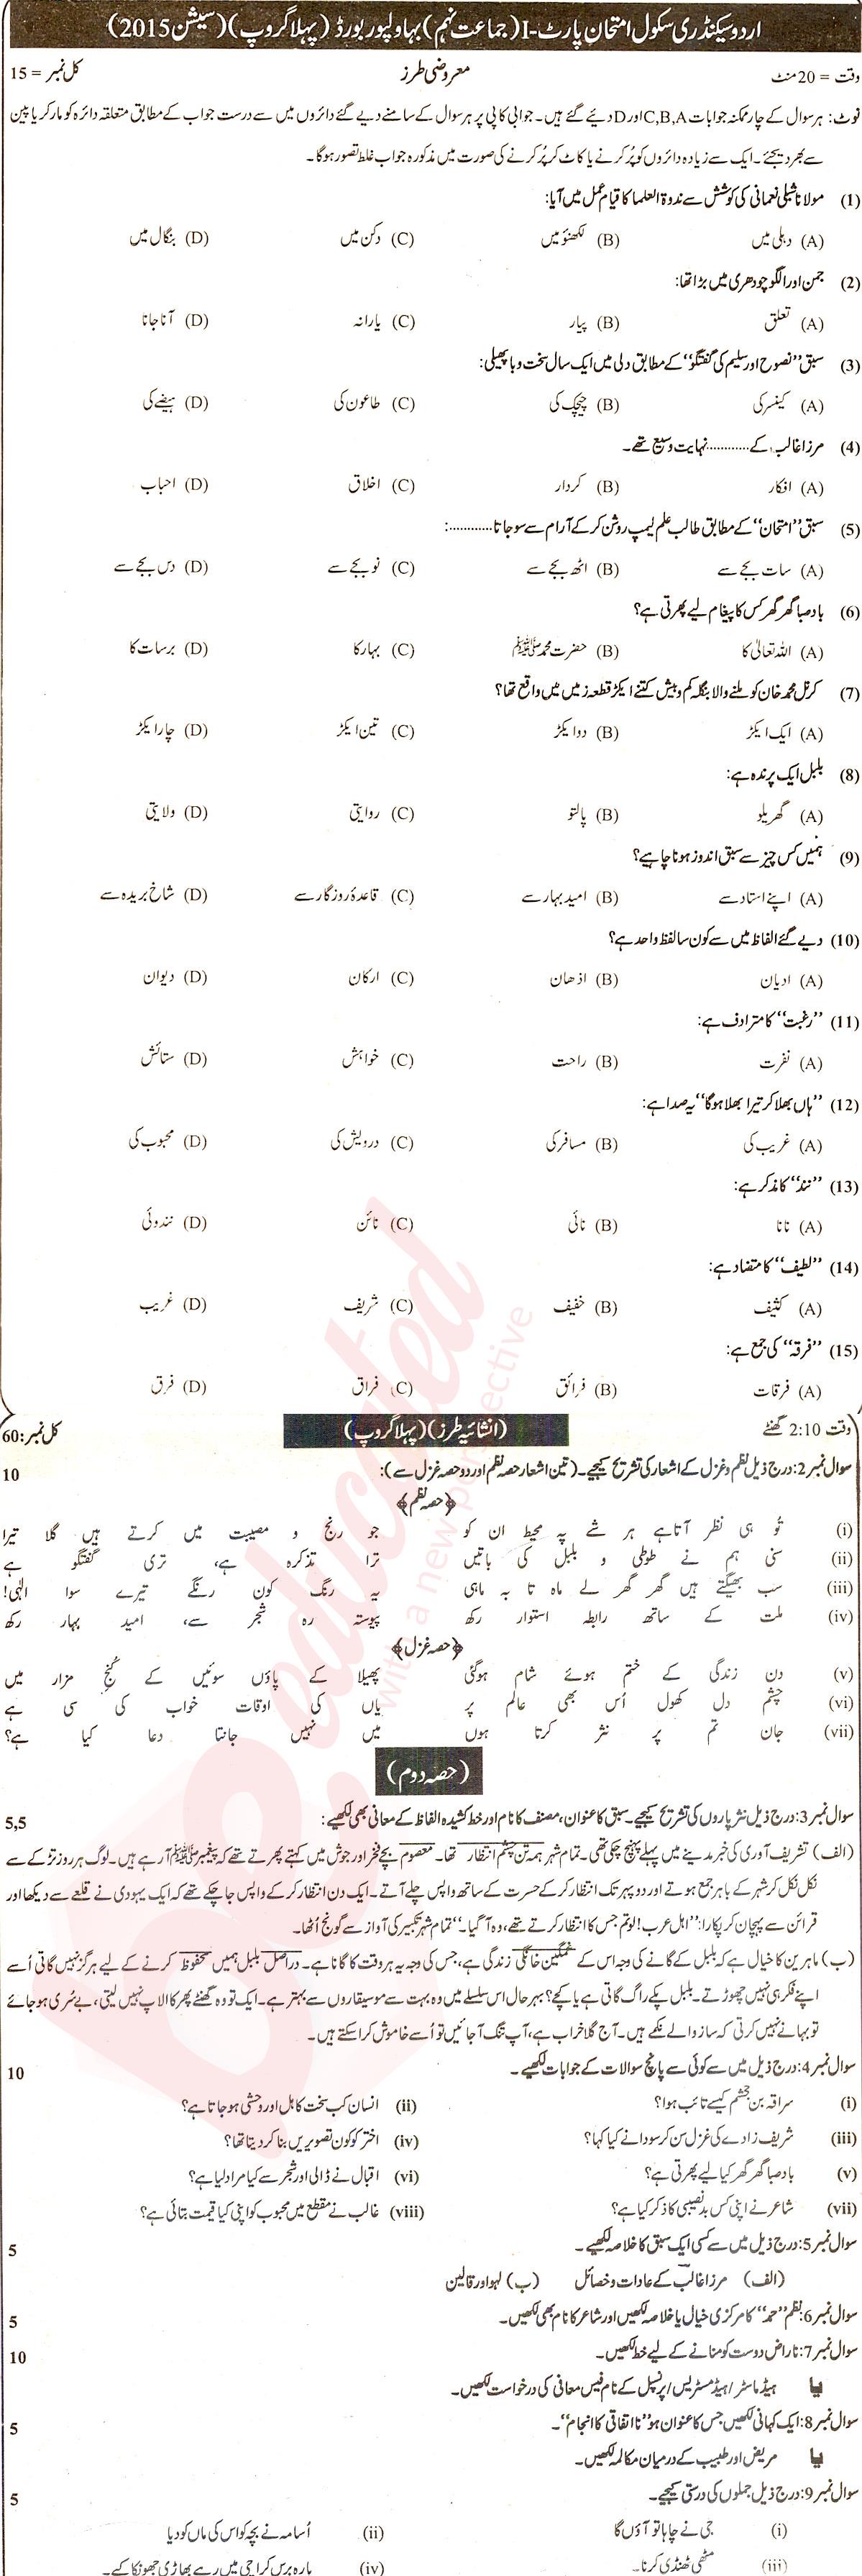 اردو سیکنڈری سکول امتحان پارٹ-I (جماعت نہم) بہاولپور بورڈ (پہلا گروپ) (سیشن 2015)
وقت = 20 منٹ معروضی طرز کل نمبر = 15
نوٹ: ہر سوال کے چار ممکنہ جوابات C,B,A اور D دیئے گئے ہیں۔ جوابی کاپی پر ہر سوال کے سامنے دیے گئے دائروں میں سے درست جواب کے مطابق متعلقہ دائرہ کو مارکر یا پین
سے بھر دیجئے۔ ایک سے زیادہ دائروں کو پُر کرنے یا کاٹ کر پُر کرنے کی صورت میں مذکورہ جواب غلط تصور ہوگا۔
(1) مولانا شبلی نعمانی کی کوشش سے ندوۃ العلما کا قیام عمل میں آیا:
(A) دہلی میں (B) لکھنؤ میں (C) دکن میں (D) بنگال میں
(2) جمن اور الگو چودھری میں بڑا تھا:
(A) تعلق (B) پیار (C) یارانہ (D) آنا جانا
(3) سبق ”نصوح اور سلیم کی گفتگو“ کے مطابق دلی میں ایک سال سخت وبا پھیلی:
(A) کینسر کی (B) چیچک کی (C) طاعون کی (D) ہیضے کی
(4) مرزا غالب کے ............ نہایت وسیع تھے۔
(A) افکار (B) کردار (C) اخلاق (D) احباب
(5) سبق ”امتحان“ کے مطابق طالب علم لیمپ روشن کر کے آرام سے سو جاتا ............:
(A) سات بجے سے (B) اٹھ بجے سے (C) نو بجے سے (D) دس بجے سے
(6) باد صبا گھر گھر کس کا پیغام لیے پھرتی ہے؟
(A) اللہ تعالیٰ کا (B) حضرت محمد ﷺ (C) بہار کا (D) برسات کا
(7) کرنل محمد خان کو ملنے والا بنگلہ کم و بیش کتنے ایکڑ قطعہ زمیں میں واقع تھا؟
(A) ایک ایکڑ (B) دو ایکڑ (C) تین ایکڑ (D) چار ایکڑ
(8) بلبل ایک پرندہ ہے:
(A) گھریلو (B) پالتو (C) روایتی (D) ولایتی
(9) ہمیں کس چیز سے سبق اندوز ہونا چاہیے؟
(A) اپنے استاد سے (B) امید بہار سے (C) قاعدۂ روزگار سے (D) شاخ بریدہ سے
(10) دیے گئے الفاظ میں سے کون سا لفظ واحد ہے؟
(A) ادیان (B) اذھان (C) ارکان (D) دیوان
(11) ”رغبت“ کا مترادف ہے:
(A) نفرت (B) راحت (C) خواہش (D) ستائش
(12) ”ہاں بھلا کر تیرا بھلا ہوگا“ یہ صدا ہے:
(A) غریب کی (B) مسافر کی (C) درویش کی (D) محبوب کی
(13) ”نند“ کا مذکر ہے:
(A) نانا (B) نائی (C) نائن (D) نندوئی
(14) ”لطیف“ کا متضاد ہے:
(A) کثیف (B) خفیف (C) شریف (D) غریب
(15) ”فرقہ“ کی جمع ہے:
(A) فرقات (B) فرائق (C) فراق (D) فرق
وقت 2:10 گھنٹے (انشائیہ طرز) (پہلا گروپ) کل نمبر:60
سوال نمبر 2: درج ذیل نظم و غزل کے اشعار کی تشریح کیجیے۔ (تین اشعار حصہ نظم اور دو حصہ غزل سے): 10
﴿حصہ نظم﴾
(i) تُو ہی نظر آتا ہے ہر شے پہ محیط ان کو جو رنج و مصیبت میں کرتے ہیں گلا تیرا
(ii) سنی ہم نے طوطی و بلبل کی باتیں ترا تذکرہ ہے، تری گفتگو ہے
(iii) سب بھیگتے ہیں گھر گھر لے ماہ تا بہ ماہی یہ رنگ کون رنگے تیرے سوا الٰہی!
(iv) ملت کے ساتھ رابطہ استوار رکھ پیوستہ رہ شجر سے، امید بہار رکھ
﴿حصہ غزل﴾
(v) دن زندگی کے ختم ہوئے شام ہوگئی پھیلا کے پاؤں سوئیں گے کُنج مزار میں
(vi) چشم دل کھول اُس بھی عالم پر یاں کی اوقات خواب کی سی ہے
(vii) جان تم پر نثر کرتا ہوں میں نہیں جانتا دعا کیا ہے؟
(حصہ دوم)
سوال نمبر 3: درج ذیل نثر پاروں کی تشریح کیجیے۔ سبق کا عنوان، مصنف کا نام اور خط کشیدہ الفاظ کے معانی بھی لکھیے: 5,5
(الف) تشریف آوری کی خبر مدینے میں پہلے پہنچ چکی تھی۔ تمام شہر ہمہ تن چشم انتظار تھا۔ معصوم بچے فخر اور جوش میں کہتے پھرتے تھے کہ پیغمبر ﷺ آرہے ہیں۔ لوگ ہر روز تڑکے سے
نکل نکل کر شہر کے باہر جمع ہوتے اور دوپہر تک انتظار کر کے حسرت کے ساتھ واپس چلے آتے۔ ایک دن انتظار کر کے واپس جا چکے تھے کہ ایک یہودی نے قلعے سے دیکھا اور
قرائن سے پہچان کر پکارا: ”اہل عرب! لو تم جس کا انتظار کرتے تھے، وہ آگیا۔“ تمام شہر تکبیر کی آواز سے گونج اُٹھا۔
(ب) ماہرین کا خیال ہے کہ بلبل کے گانے کی وجہ اس کے غمگین خانگی زندگی ہے، جس کی وجہ یہ ہر وقت کا گانا ہے۔ دراصل بلبل ہمیں محظوظ کرنے کے لیے ہرگز نہیں گاتی اُسے
اپنے فکر ہی نہیں چھوڑتے۔ بلبل پکے راگ گاتی ہے یا کچے؟ بہرحال اس سلسلے میں وہ بہت سے موسیقاروں سے بہتر ہے۔ ایک تو وہ گھنٹے بھر کا الاپ نہیں لیتی، بے سُری ہو جائے
تو بہانے نہیں کرتی کہ ساز والے نکمے ہیں۔ آج گلا خراب ہے، آپ تنگ آجائیں تو اُسے خاموش کرا سکتے ہیں۔
سوال نمبر 4: درج ذیل میں سے کوئی سے پانچ سوالات کے جوابات لکھیے۔ 10
(i) سراقہ بن جشم کیسے تائب ہوا؟ (ii) انسان کب سخت کاہل اور وحشی ہو جاتا ہے؟
(iii) شریف زادے کی غزل سن کر سودا نے کیا کہا؟ (iv) اختر کو کون تصویریں بنا کر دیتا تھا؟
(v) باد صبا گھر گھر کیا لیے پھرتی ہے؟ (vi) اقبال نے ڈالی اور شجر سے کیا مراد لیا ہے؟
(vii) شاعر نے اپنی کس بدنصیبی کا ذکر کیا ہے؟ (viii) غالب نے مقطع میں محبوب کو اپنی کیا قیمت بتائی ہے؟
سوال نمبر 5: درج ذیل میں سے کسی ایک سبق کا خلاصہ لکھیے۔ 5
(الف) مرزا غالب کے عادات و خصائل (ب) لہو اور قالین
سوال نمبر 6: نظم ”حمد“ کا مرکزی خیال یا خلاصہ لکھیں اور شاعر کا نام بھی لکھیں۔ 5
سوال نمبر 7: ناراض دوست کو منانے کے لیے خط لکھیں۔ 10
یا ہیڈ ماسٹر/ہیڈ مسٹریس/پرنسپل کے نام فیس معافی کی درخواست لکھیں۔
سوال نمبر 8: ایک کہانی لکھیں جس کا عنوان ہو ”نااتفاقی کا انجام“۔ 5
یا مریض اور طبیب کے درمیان مکالمہ لکھیں۔
سوال نمبر 9: درج ذیل جملوں کی درستی کیجیے۔ 5
(i) جی نے چاہا تو آؤں گا (ii) اُسامہ نے بچہ کو اس کی ماں کو دیا
(iii) مٹھی ٹھنڈی کرنا۔ (iv) بارہ برس کراچی میں رہے بھاڑ ہی جھونکا کے۔
educated
with a new perspective